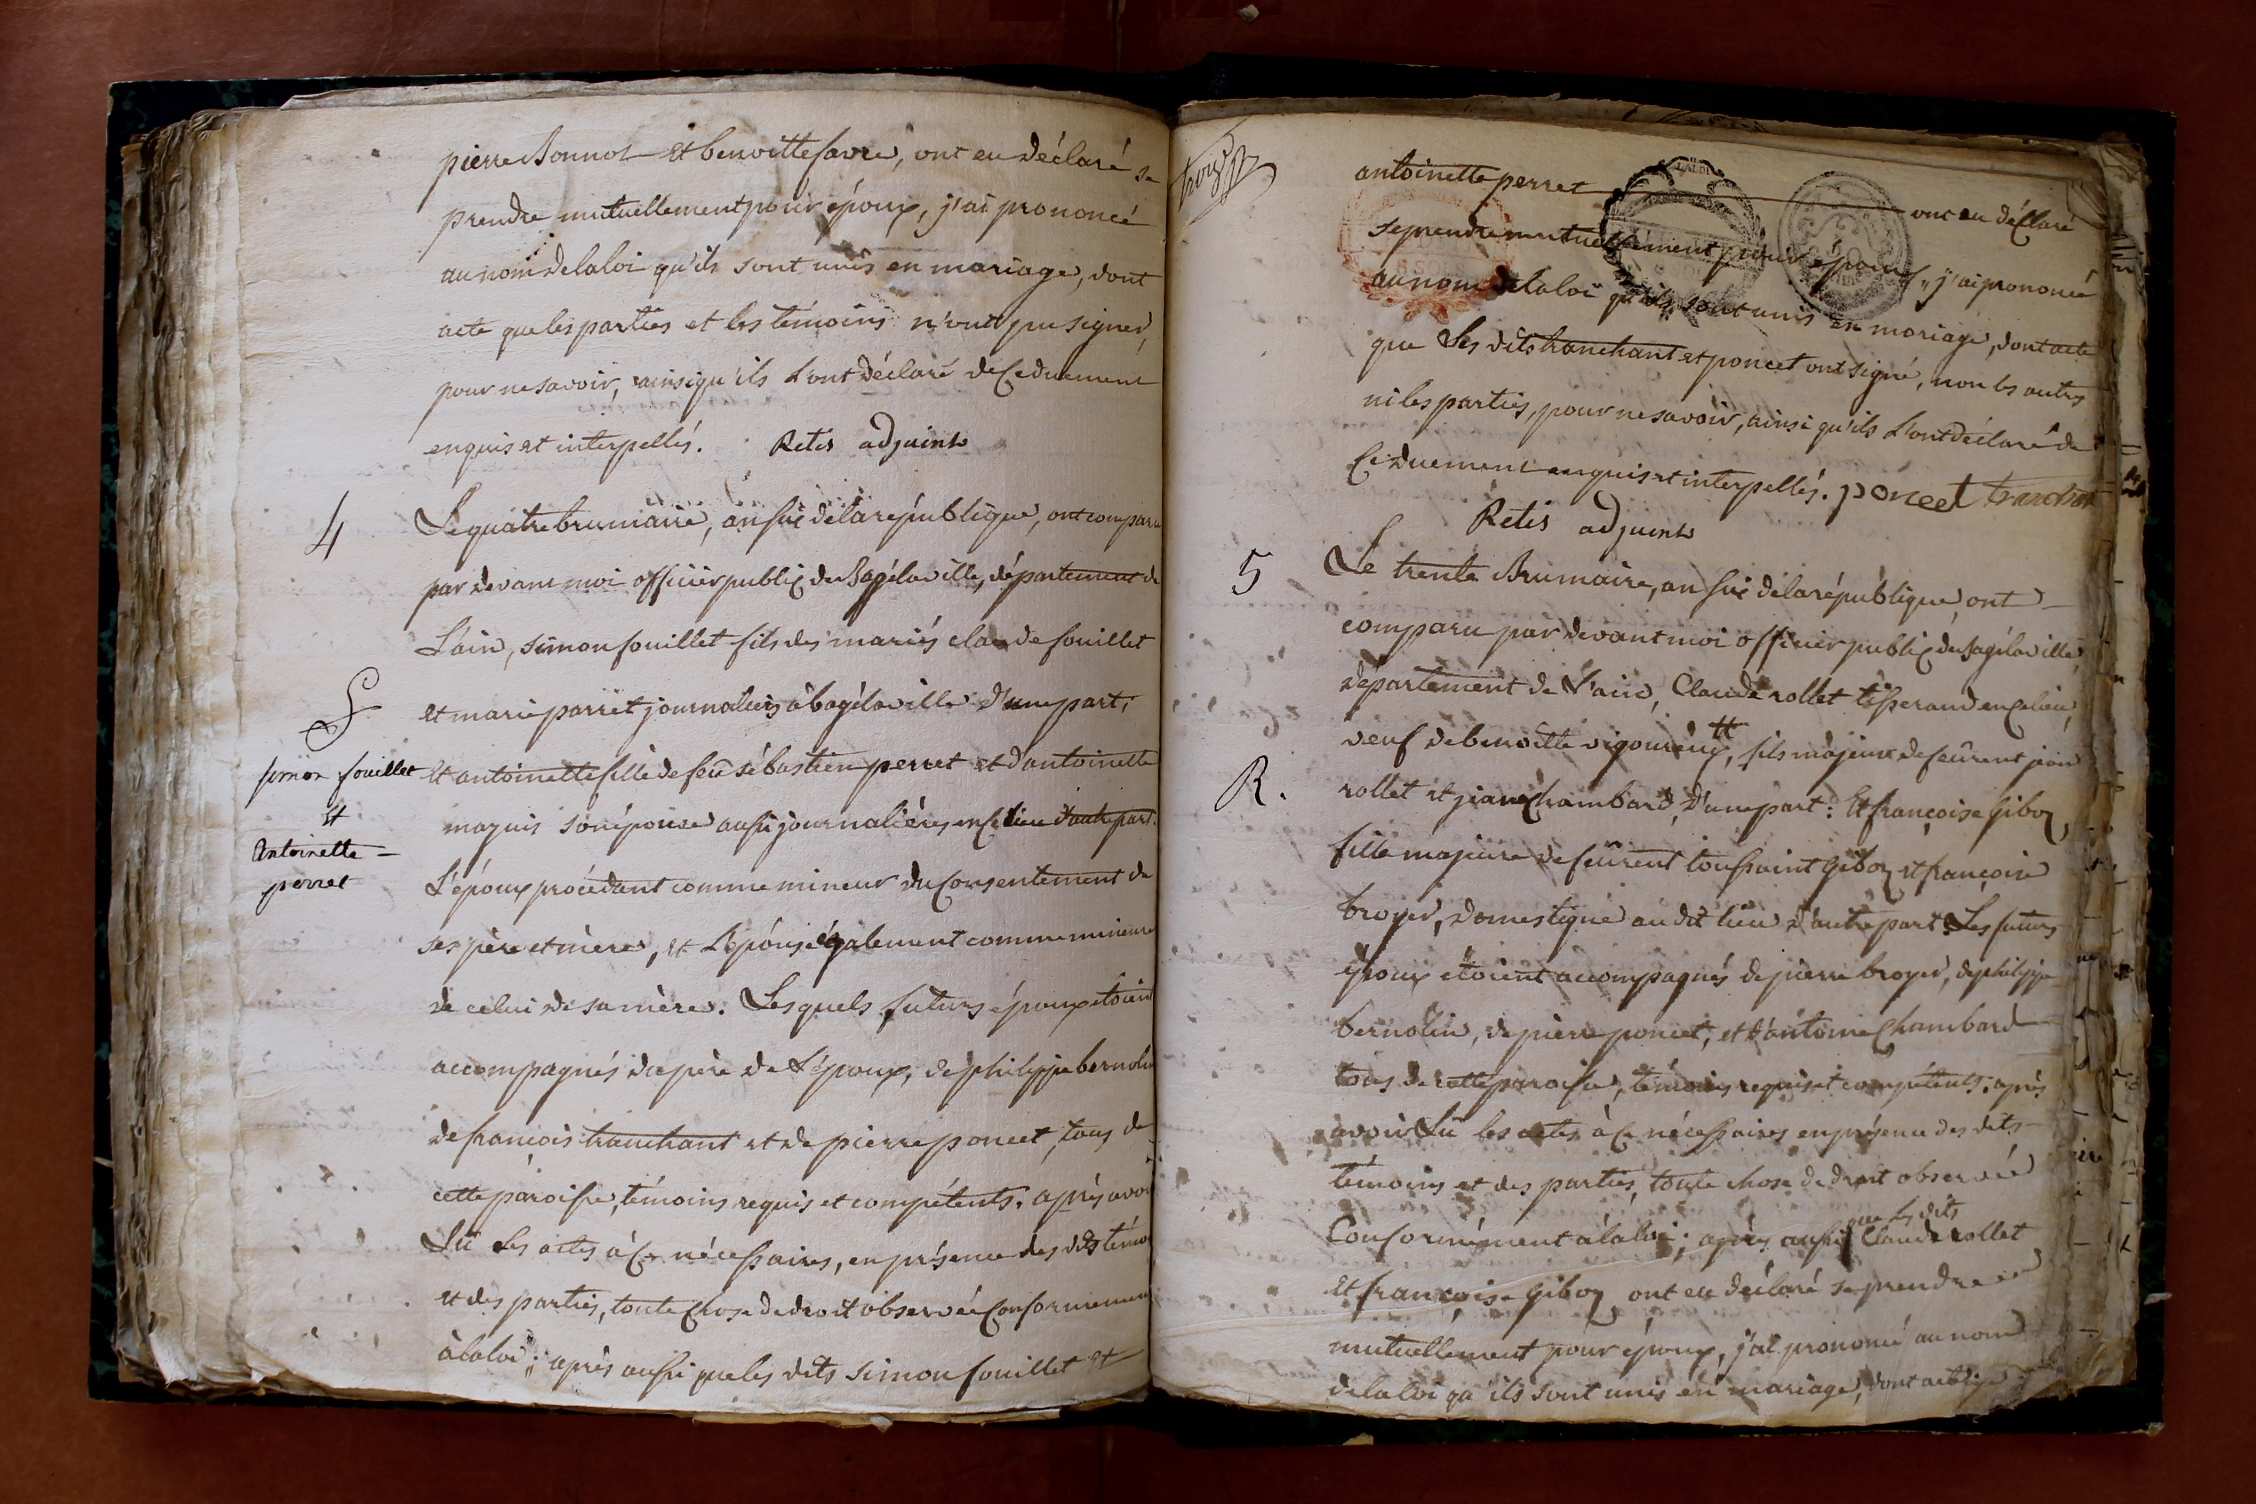 pierre Bonnot et benoitte favre, ont eu déclaré se
prendre mutuellement pour époux, j'ai prononcé
au nom de la loi qu'ils sont unis en mariage, dont
acte que les parties et les témoins n'ont pu signer,
pour ne savoir, ainsi qu'ils l'ont déclaré de ce duement
enquis et interpellés. Retis adjuint
4
Le quatre brumaire, an six de la république, ont comparu
par devant moi officier public de Bagé la ville, département de
L'ain, simon fouillet fils des mariés claude fouillet
et marie parret journaliers à bagé la ville d'une part;
f
simon fouillet
et
Antoinette
perret
et antoinette fille de feu sébastien perret et d'antoinette
moguis son épouse aussi journalière en ce lieu d'autre part.
L'époux procédant comme mineur du consentement de
ses père et mère, et L'épouse également comme mineure
de celui de sa mère. Lesquels futurs époux étoient
accompagnés du père de L'époux, de philippe bernolin
de françois tranchant et de pierre poncet, tous de
cette paroisse, témoins requis et compétents. après avoir
Lu les actes à ce nécessaires, en présence des dits témo
et des parties, toute chose de droit observée conformement
à la loi; après aussi que les dits simon fouillet et
antoinette perret ont eu déclaré
se prendre mutuellement pour époux, j'ai prononcé
au nom de la loi qu'ils sont unis en mariage, dont acte
que Les dits tranchant et poncet ont signé, non les autres
ni les parties, pour ne savoir, ainsi qu'ils L'ont déclaré de
Ce duement enquis et interpellés. poncet tranchant
Retis adjuint
5
Le trente Brumaire, an six de la république ont
comparu par devant moi officier public de Bagé la ville,
département de L'ain, Claude rollet tisserand en ce lieu,
veuf de benoitte vigoureux, fils majeur de feûrent jean
R.
rollet et jeane Chambard, d'une part: Et françoise Giboz
fille majeure de feûrent toussaint Giboz et françoise
broyer, domestique au dit lieu d'autre part. Les futurs
époux étoient accompagnés de pierre broyer, de philippe
bernolin, de pierre poncet, et d'antoine Chambard
tous de cette paroisse, témoins requis et compétents. après
avoir Lu les actes à ce nécessaires en présence des dits
témoins et des parties, toute chose de droit observée
Conformément à la loi; après aussi que les dits Claude rollet
et françoise Giboz ont eu déclaré se prendre
mutuellement pour époux, j'ai prononcé au nom
de la loi qu'ils sont unis en mariage, dont acte que